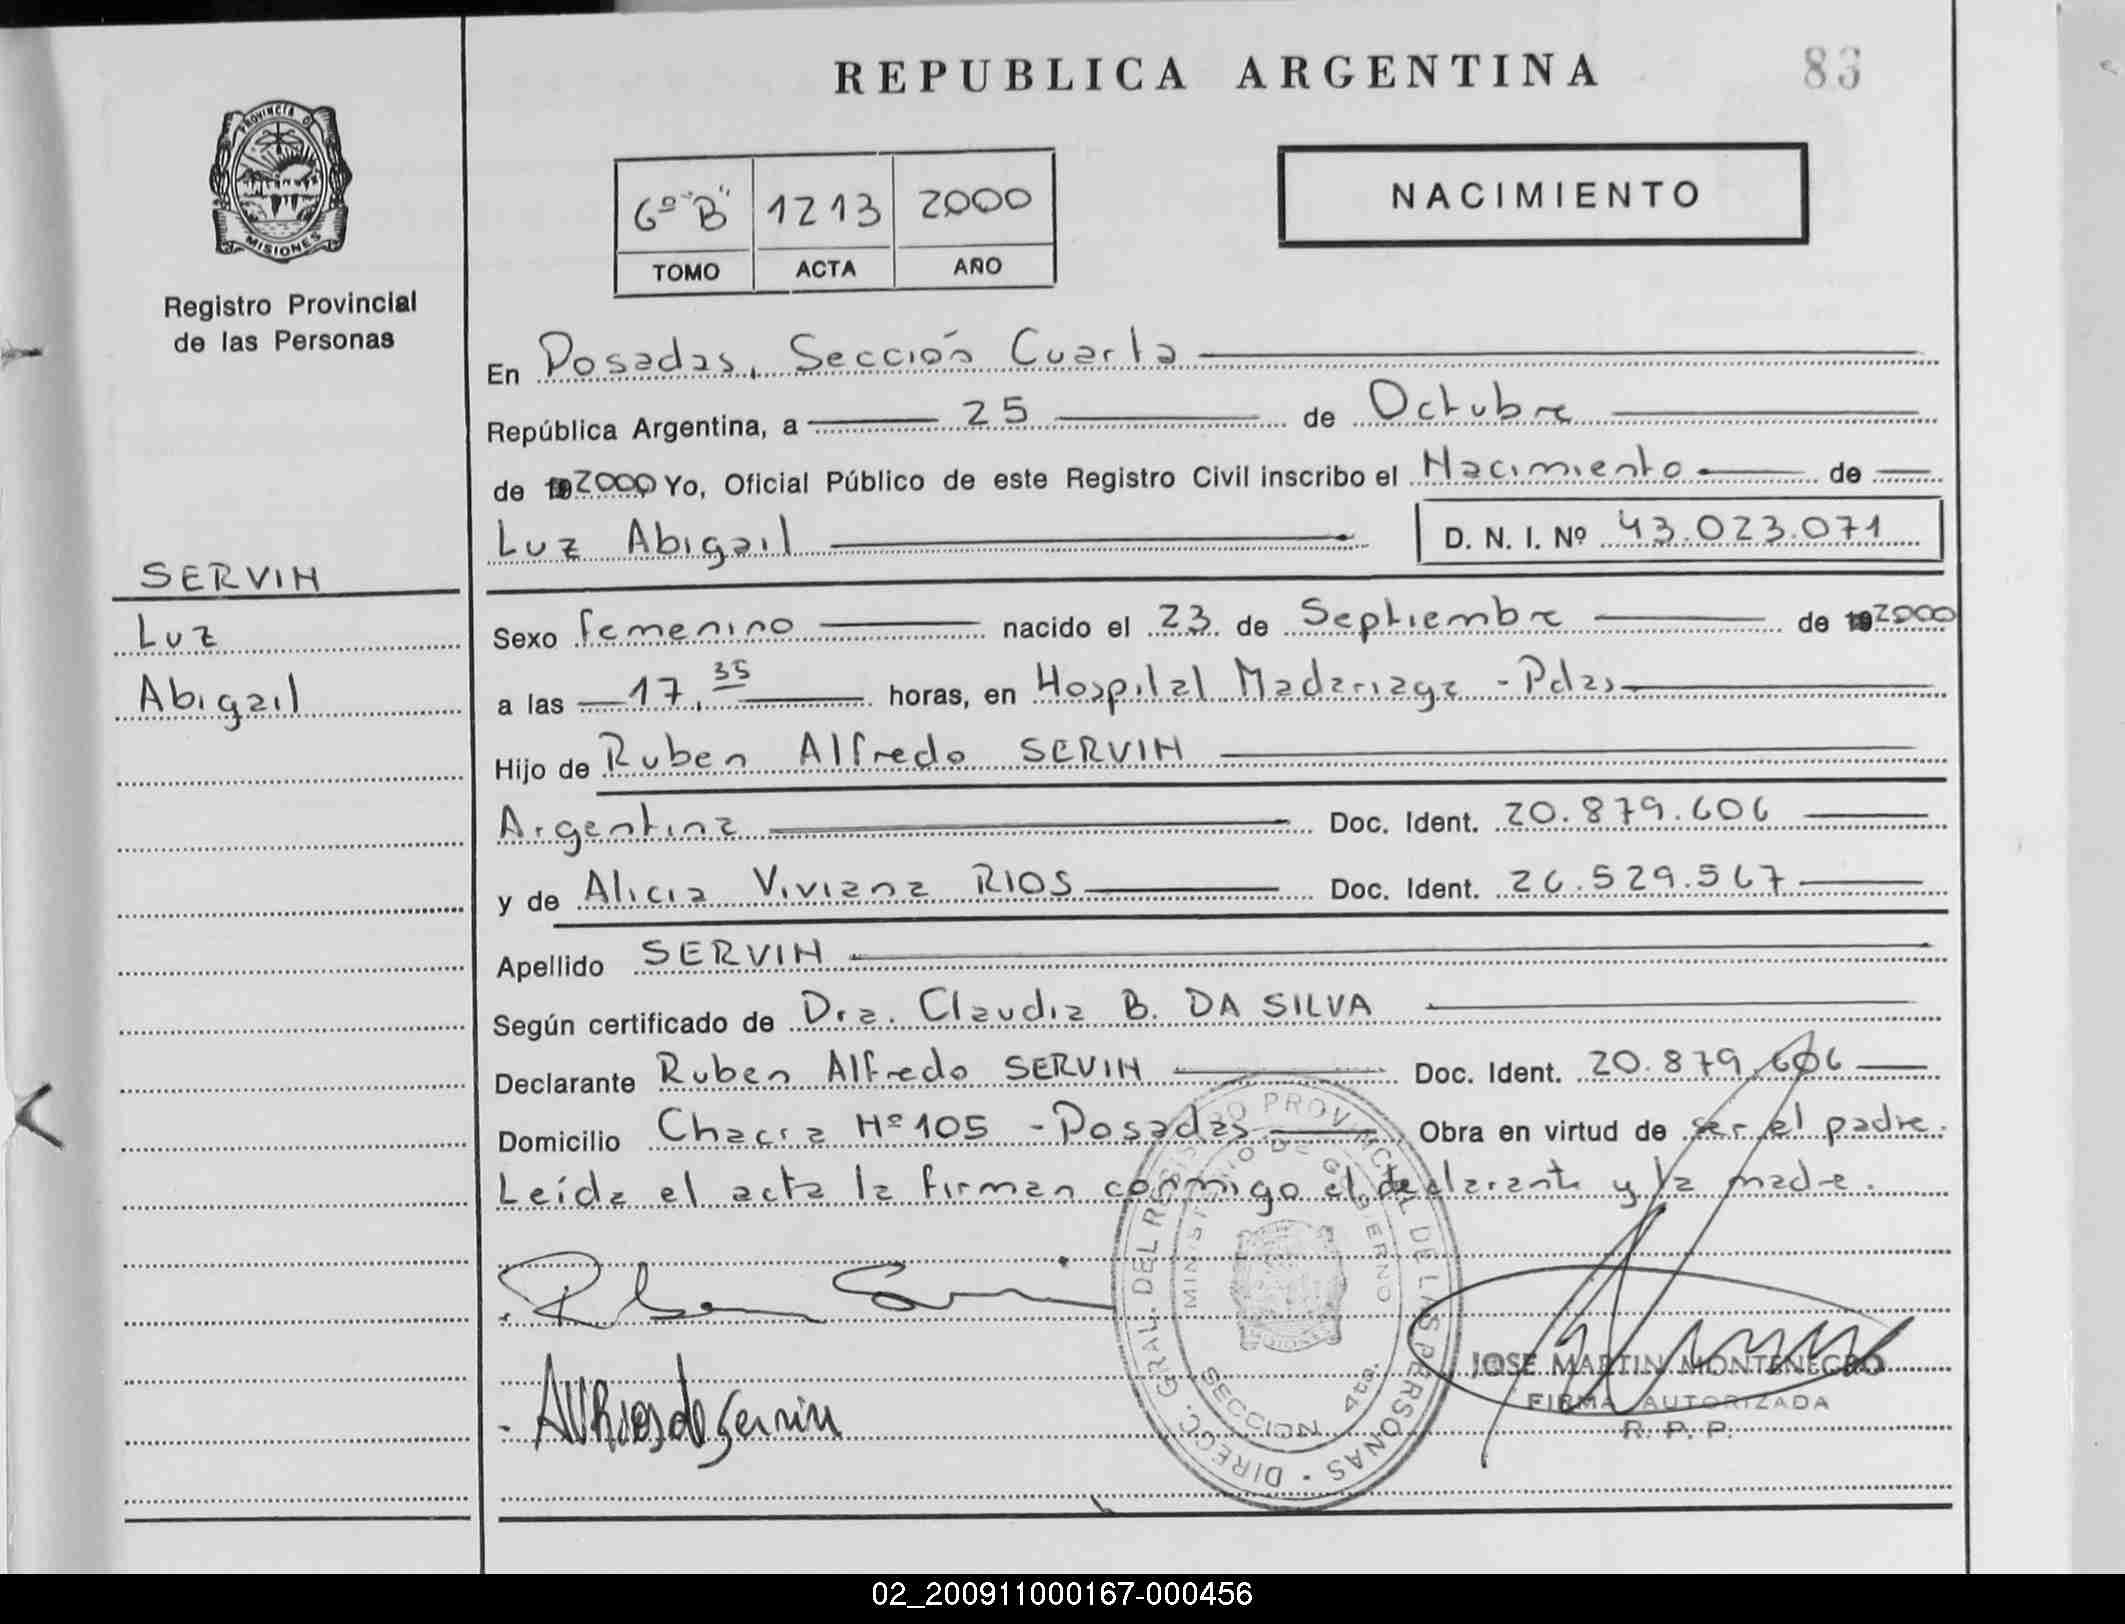 REPUBLICA ARGENTINA
83
PROVINCIA D
MISIONES
Registro Provincial
de las Personas
6º "B" 1213 2000
TOMO ACTA AÑO
NACIMIENTO
En Posadas, Sección Cuarta
República Argentina, a 25 de Octubre
de 2000 Yo, Oficial Público de este Registro Civil inscribo el Nacimiento de
Luz Abigail D. N. I. Nº 43.023.071
SERVIN
Luz
Abigail
Sexo femenino nacido el 23 de Septiembre de 2000
a las 17,35 horas, en Hospital Madariaga - Pdas
Hijo de Ruben Alfredo SERVIN
Argentina Doc. Ident. 20.879.606
y de Alicia Viviana RIOS Doc. Ident. 26.529.567
Apellido SERVIN
Según certificado de Dra. Claudia B. DA SILVA
Declarante Ruben Alfredo SERVIN Doc. Ident. 20.879.606
Domicilio Chacra Nº 105 - Posadas Obra en virtud de ser el padre.
Leída el acta la firman conmigo el declarante y la madre.
DIRECC. GRAL. DEL REGISTRO PROVINCIAL DE LAS PERSONAS
MINISTERIO DE GOBIERNO
SECCION 4ta.
AVRios de Servin
JOSE MARTIN MONTENEGRO
FIRMA AUTORIZADA
R. P. P.
02_200911000167-000456